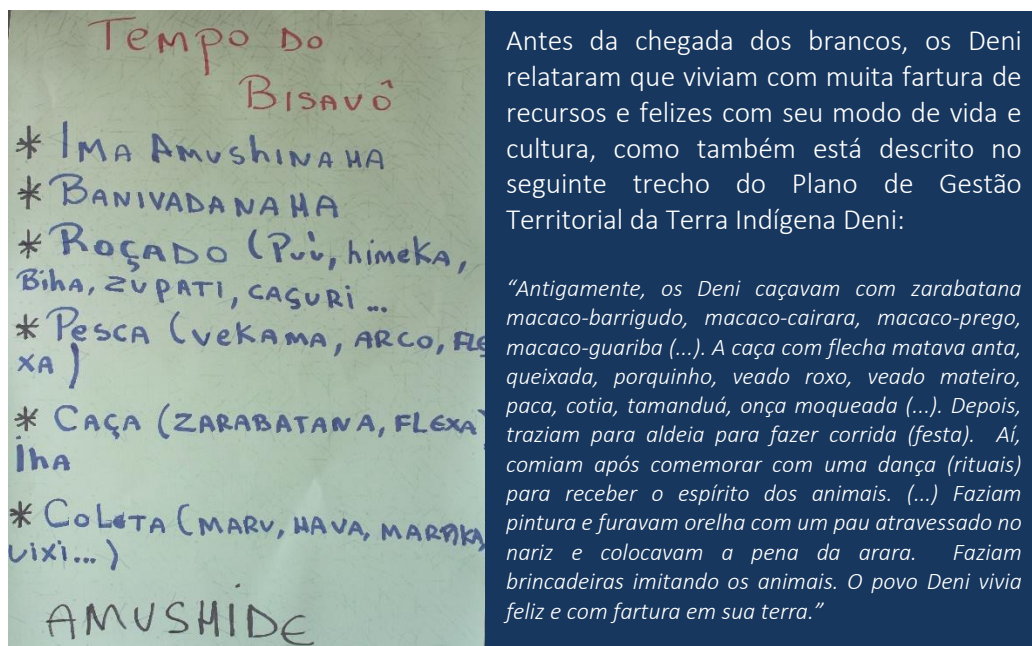 TEMPO DO
BISAVÔ
* IMA AMUSHINAHA
* BANIVADANAHA
* ROÇADO (PUÙ, himeKA,
BihA, ZUPATI, CAṢURI ...
* PESCA (VEKAMA, ARCO, FLE
XA)
* CAÇA (ZARABATANA, FLEXA)
IhA
* COLETA (MARU, HAVA,
UIXI... )
AMUSHIDE
Antes da chegada dos brancos, os Deni
relataram que viviam com muita fartura de
recursos e felizes com seu modo de vida e
cultura, como também está descrito no
seguinte trecho do Plano de Gestão
Territorial da Terra Indígena Deni:
“Antigamente, os Deni caçavam com zarabatana
macaco-barrigudo, macaco-cairara, macaco-prego,
macaco-guariba (...). A caça com flecha matava anta,
queixada, porquinho, veado roxo, veado mateiro,
paca, cotia, tamanduá, onça moqueada (...). Depois,
traziam para aldeia para fazer corrida (festa). Aí,
comiam após comemorar com uma dança (rituais)
para receber o espírito dos animais. (...) Faziam
pintura e furavam orelha com um pau atravessado no
nariz e colocavam a pena da arara. Faziam
brincadeiras imitando os animais. O povo Deni vivia
feliz e com fartura em sua terra.”